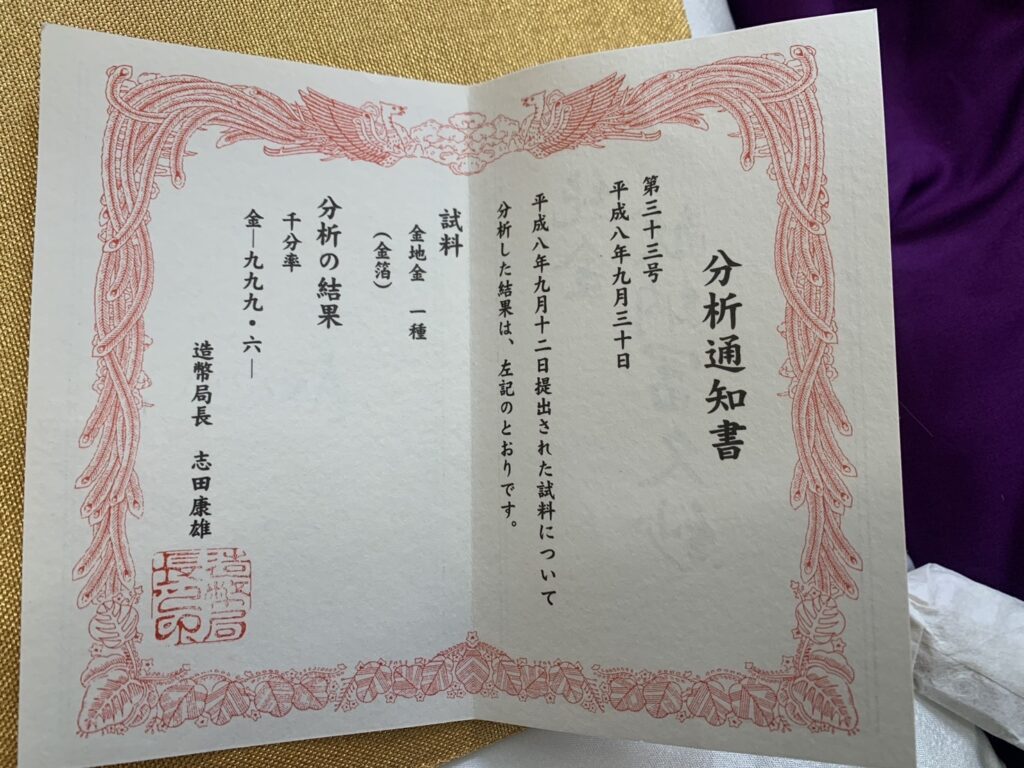 分析通知書
第三十三号
平成八年九月三十日
平成八年九月十二日提出された試料について
分析した結果は、左記のとおりです。
試料
金地金 一種
(金箔)
分析の結果
千分率
金―九九九・六―
造幣局長 志田康雄
造幣局
長之印